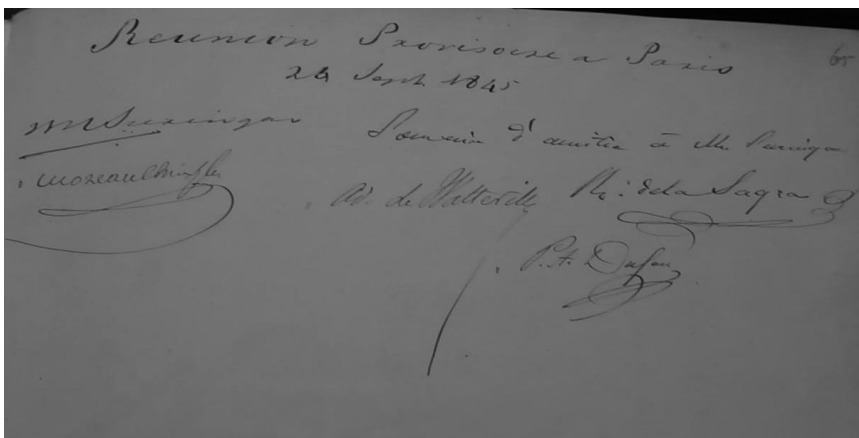 Reunion Provisoire a Paris
65
24 Sept. 1845
WH Suringar
Souvenir d'amitié à Mr Suringar
Moreau Christophe
Ad. de Watteville
Rn: de la Sagra
P. A. Dufau